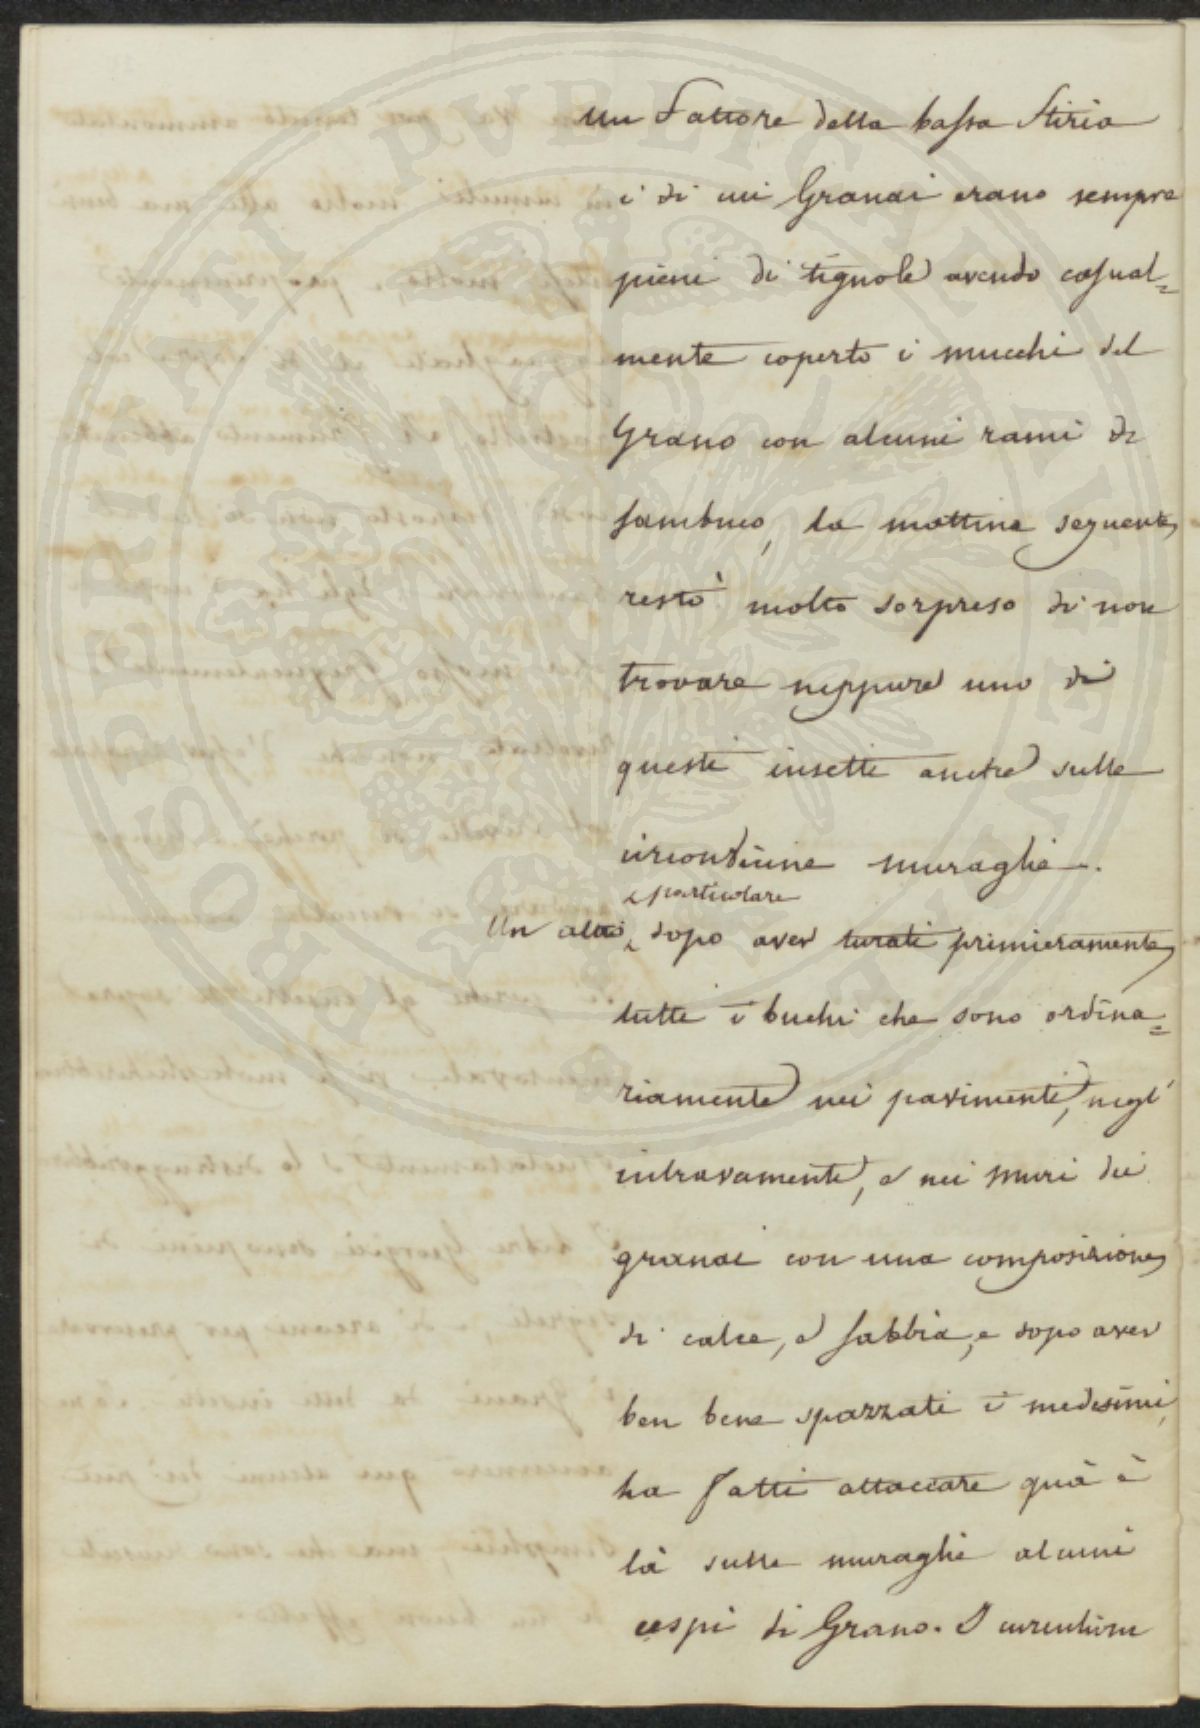 Un Fattore della bassa Stiria
i di cui Granai erano sempre
pieni di tignole avendo casual=
mente coperto i mucchi del
Grano con alcuni rami di
sambuco, la mattina seguente
restò molto sorpreso di non
trovare neppure uno di
questi insetti anche sulle
circonvicine muraglie.
particolare
Un altro dopo aver turati primieramente
tutti i buchi che sono ordina=
riamente nei pavimenti, negl'
intravamenti, e nei muri dei
granai con una composizione
di calce, e sabbia, e dopo aver
ben bene spazzati i medesimi,
ha fatti attaccare quà è
là sulle muraglie alcuni
cespi di Grano. I curculioni
PROSPERITATI PUBLICAE AUGENDAE